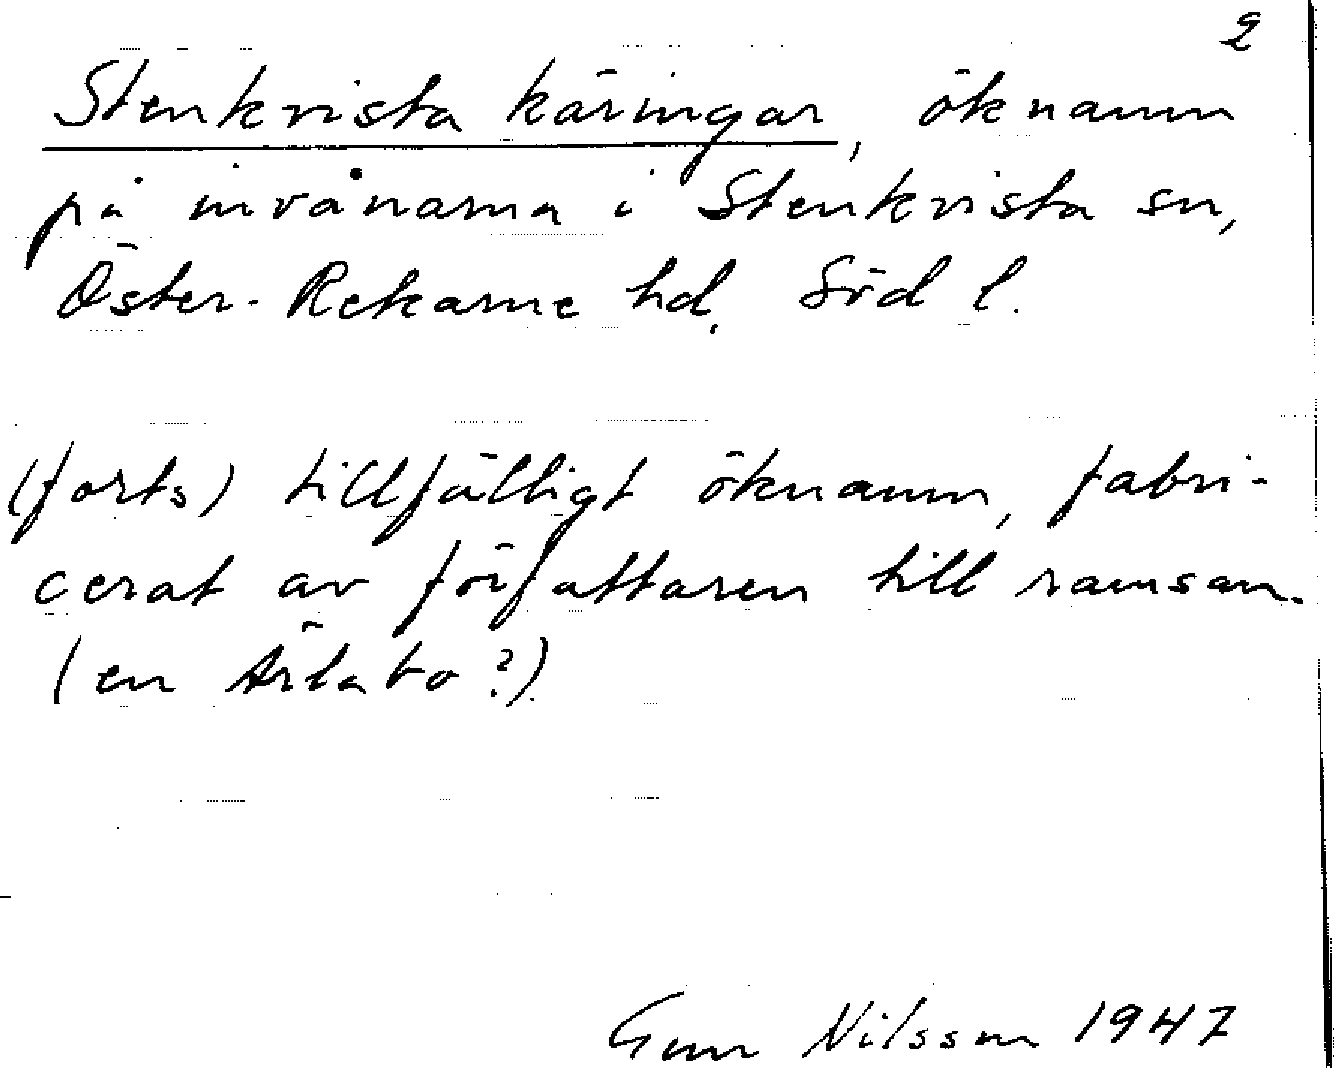 2
Stenkvista käringar, öknamn
på invånarna i Stenkvista sn,
Öster-Rekarne hd, Söd l.
(forts) tillfälligt öknamn, fabri-
cerat av författaren till ramsan.
(en Ärlabo?)
Gun Nilsson 1947